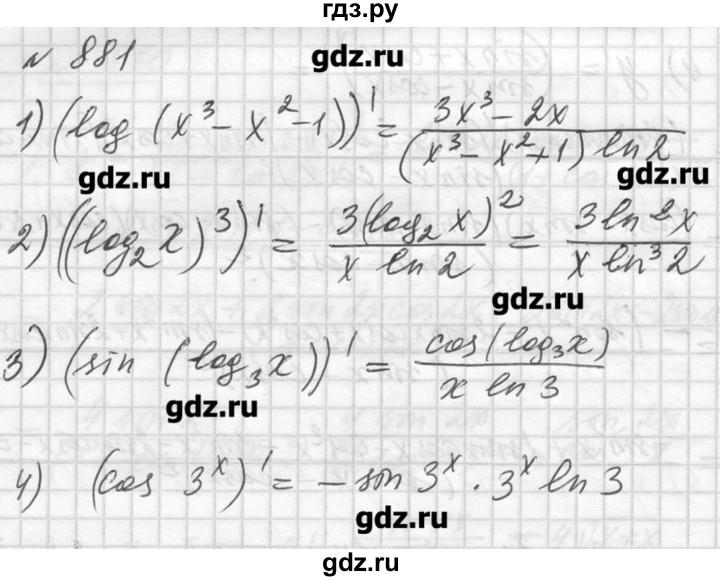 гдз.ру
№ 881
gdz.ru
1) (log (x³ - x² - 1))' = (3x³ - 2x)/((x³ - x² + 1) ln 2)
gdz.ru gdz.ru
2) ((log₂ x)³)' = 3(log₂ x)²/(x ln 2) = 3 ln² x/(x ln³ 2)
gdz.ru
3) (sin (log₃ x))' = cos(log₃ x)/(x ln 3)
gdz.ru
4) (cos 3ˣ)' = - sin 3ˣ · 3ˣ ln 3
gdz.ru
gdz.ru